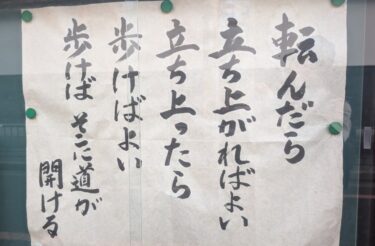 転んだら
立ち上がればよい
立ち上ったら
歩けばよい
歩けば そこに道が
開ける